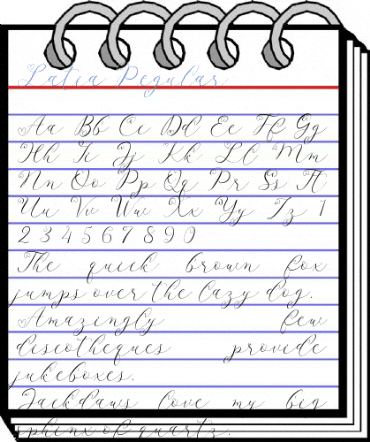 Latia Regular
Aa Bb Cc Dd Ee Ff Gg
Hh Ii Jj Kk Ll Mm
Nn Oo Pp Qq Rr Ss Tt
Uu Vv Ww Xx Yy Zz 1
2 3 4 5 6 7 8 9 0
The quick brown fox
jumps over the lazy dog.
Amazingly few
discotheques provide
jukeboxes.
Jackdaws love my big
sphinx of quartz.